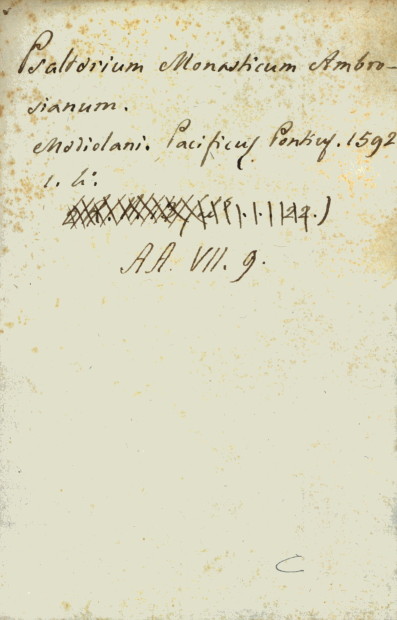 Psalterium Monasticum Ambro-
sianum.
Mediolani. Pacificus Pontius. 1592
AA. VII. 9.
C